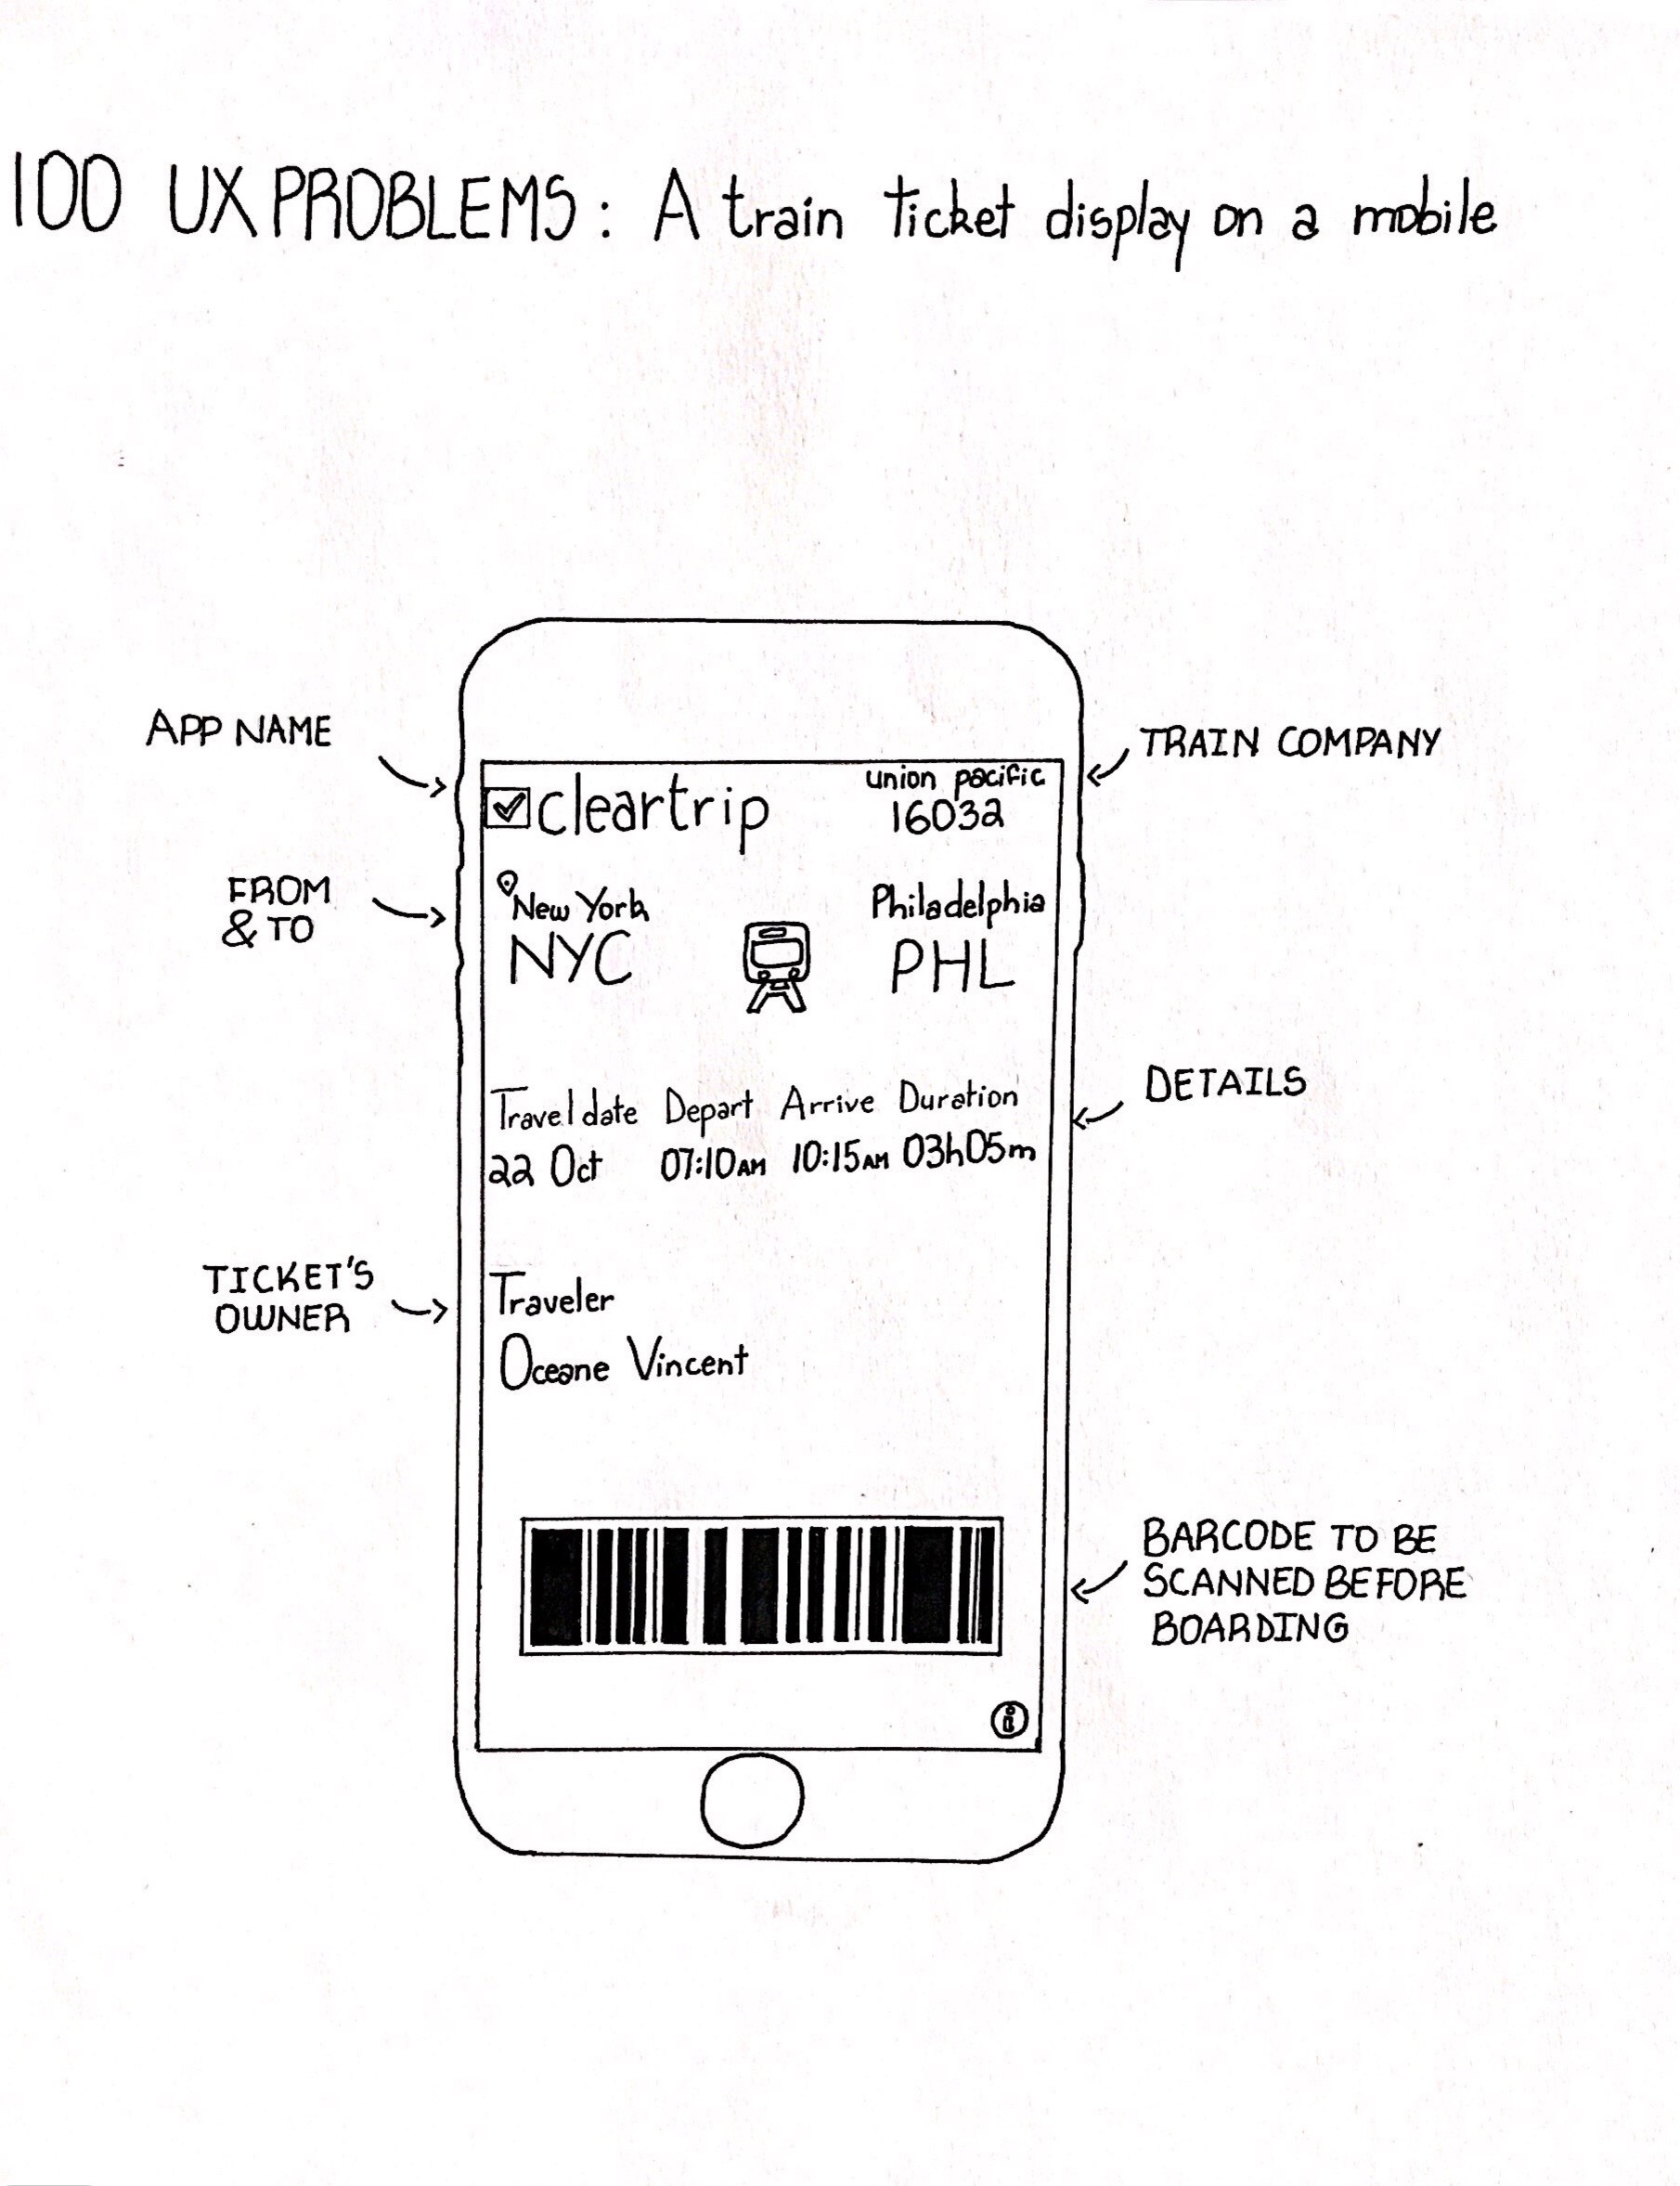 100 UX PROBLEMS: A train ticket display on a mobile
APP NAME
TRAIN COMPANY
cleartrip
union pacific
16032
FROM
& TO
New York
Philadelphia
NYC
PHL
DETAILS
Travel date Depart Arrive Duration
22 Oct 07:10AM 10:15AM 03h05m
TICKET'S
OWNER
Traveler
Oceane Vincent
BARCODE TO BE
SCANNED BEFORE
BOARDING
i